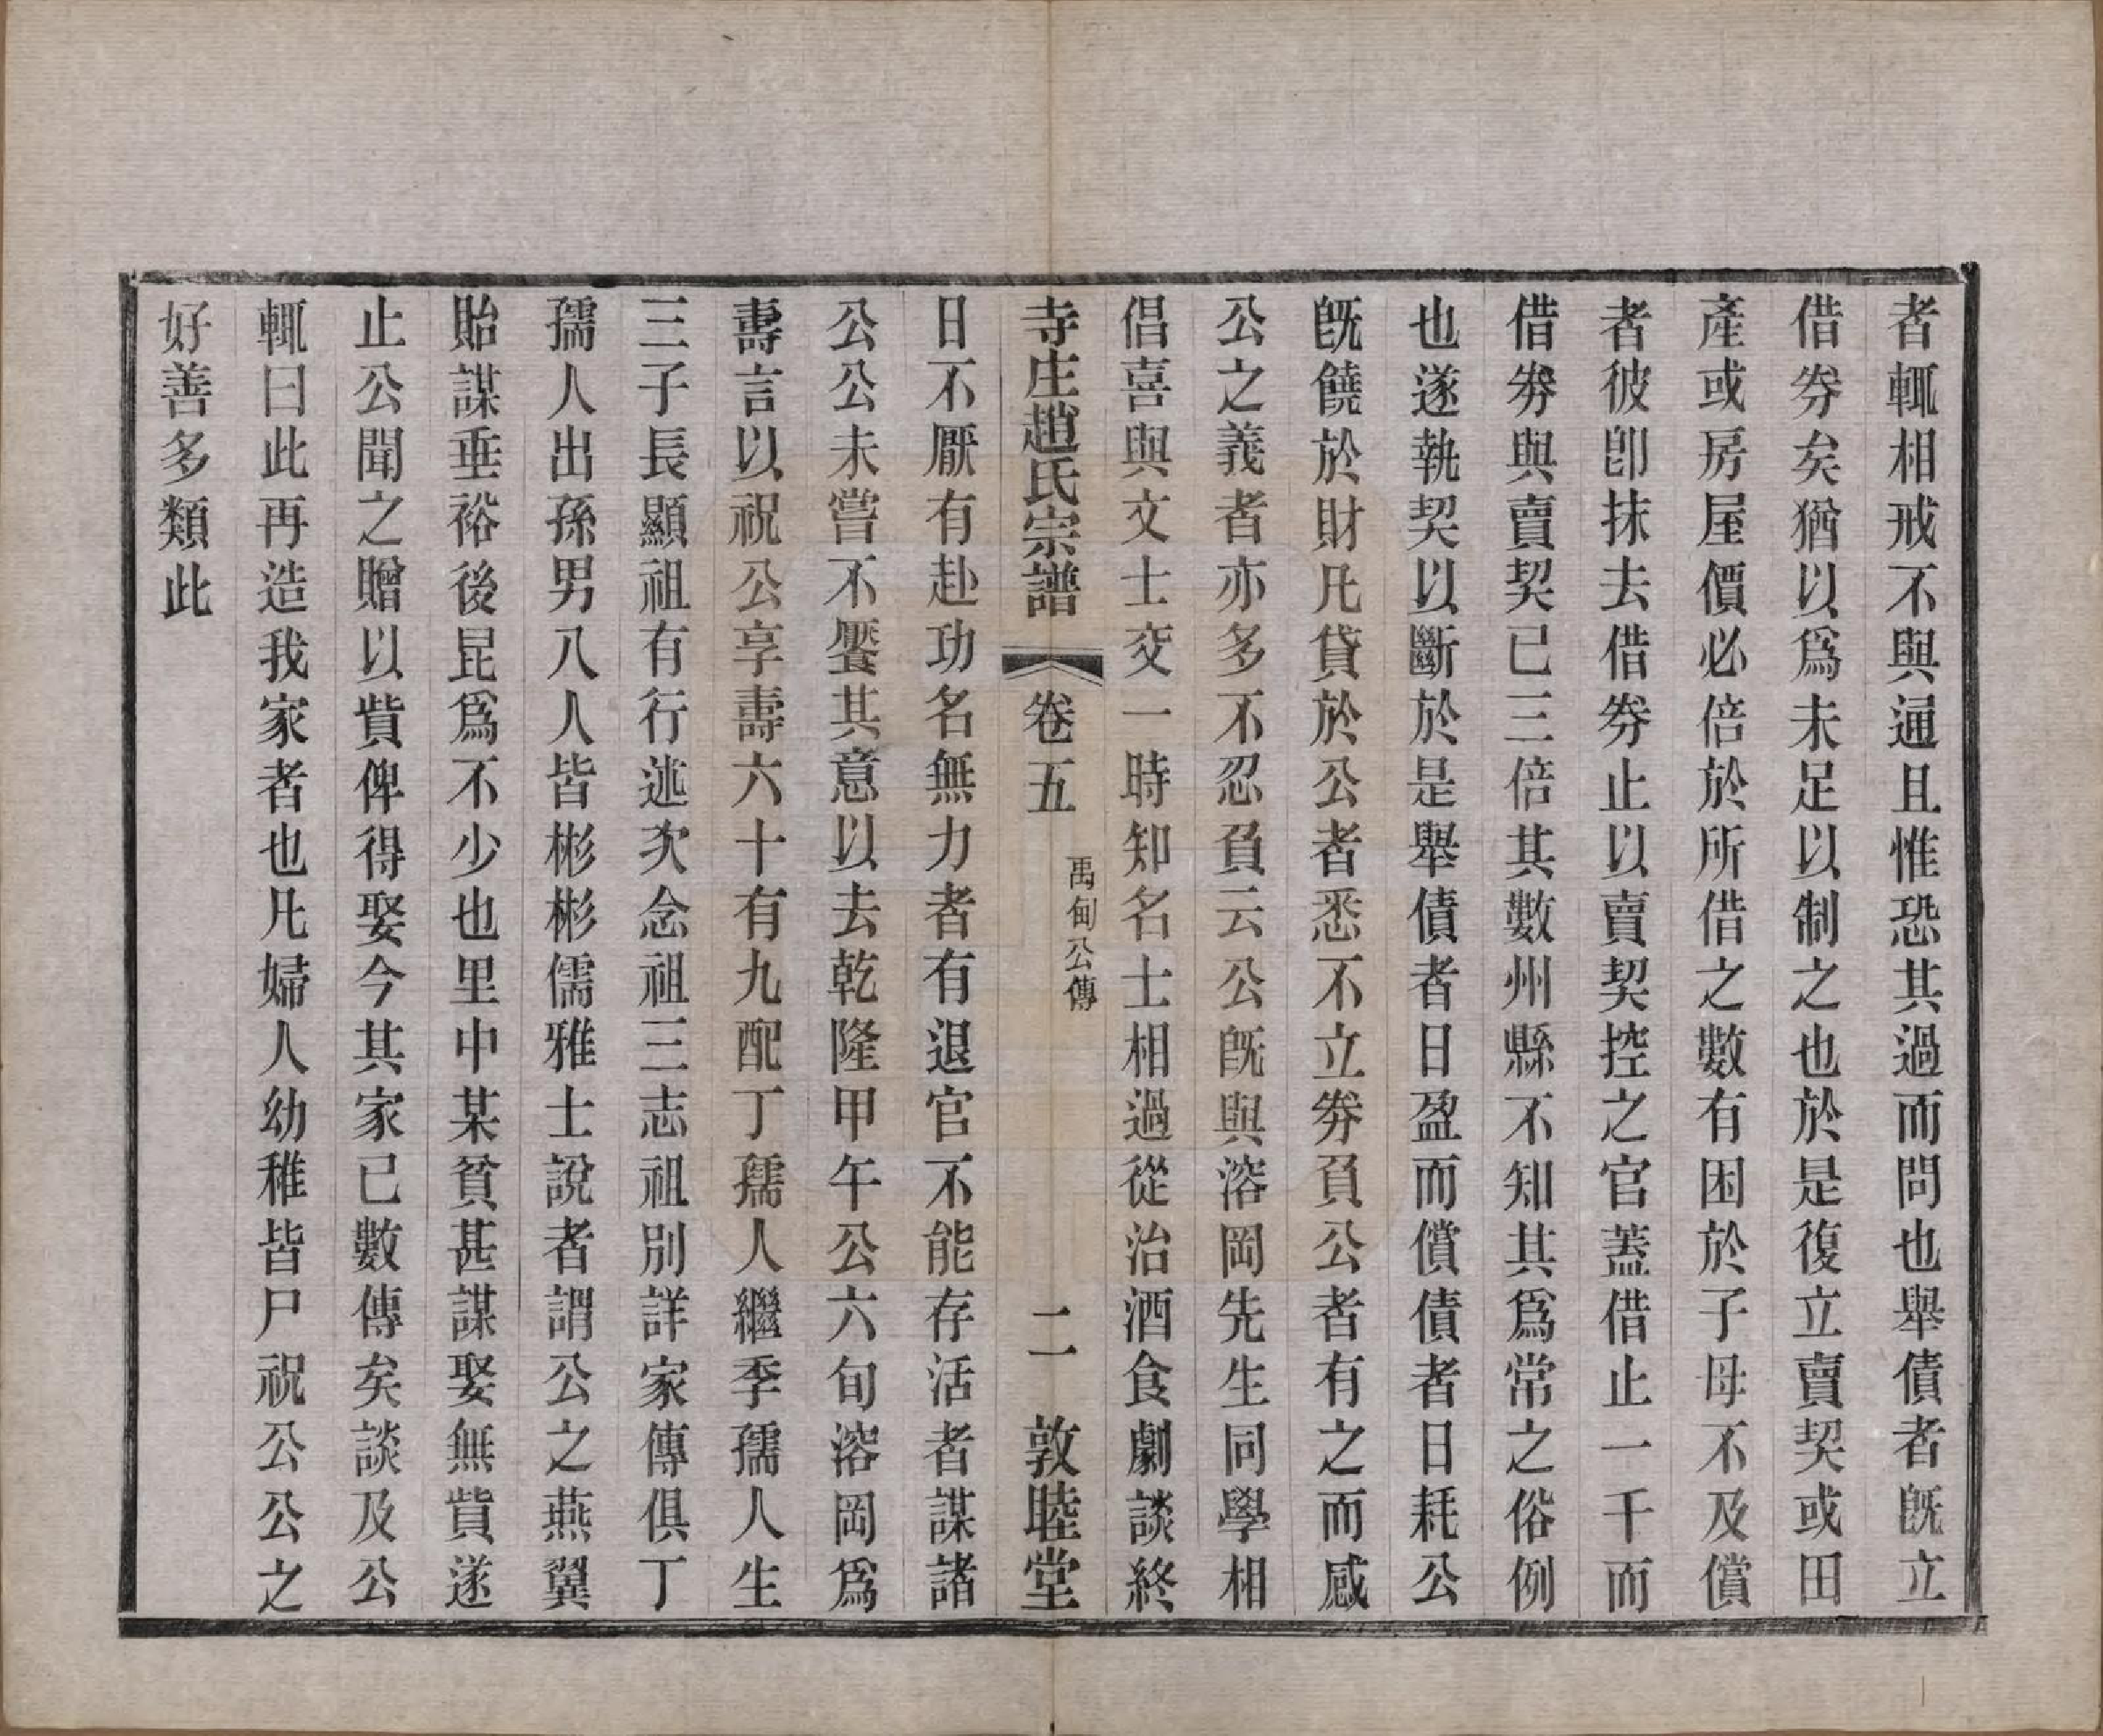 者輒相戒不與通且惟恐其過而問也舉債者既立
借劵矣猶以爲未足以制之也於是復立賣契或田
產或房屋價必倍於所借之數有困於子母不及償
者彼卽抹去借劵止以賣契控之官蓋借止一千而
借劵與賣契已三倍其數州縣不知其爲常之俗例
也遂執契以斷於是舉債者日盈而償債者日耗公
旣饒於財凡貸於公者悉不立劵負公者有之而感
公之義者亦多不忍負云公旣與溶岡先生同學相
倡喜與文士交一時知名士相過從治酒食劇談終
寺庄趙氏宗譜 卷五 禹甸公傳 二 敦睦堂
日不厭有赴功名無力者有退官不能存活者謀諸
公公未嘗不饜其意以去乾隆甲午公六旬溶岡爲
壽言以祝公享壽六十有九配丁孺人繼季孺人生
三子長顯祖有行述次念祖三志祖別詳家傳俱丁
孺人出孫男八人皆彬彬儒雅士說者謂公之燕翼
貽謀垂裕後昆爲不少也里中某貧甚謀娶無貲遂
止公聞之贈以貲俾得娶今其家已數傳矣談及公
輒曰此再造我家者也凡婦人幼稚皆尸祝公公之
好善多類此